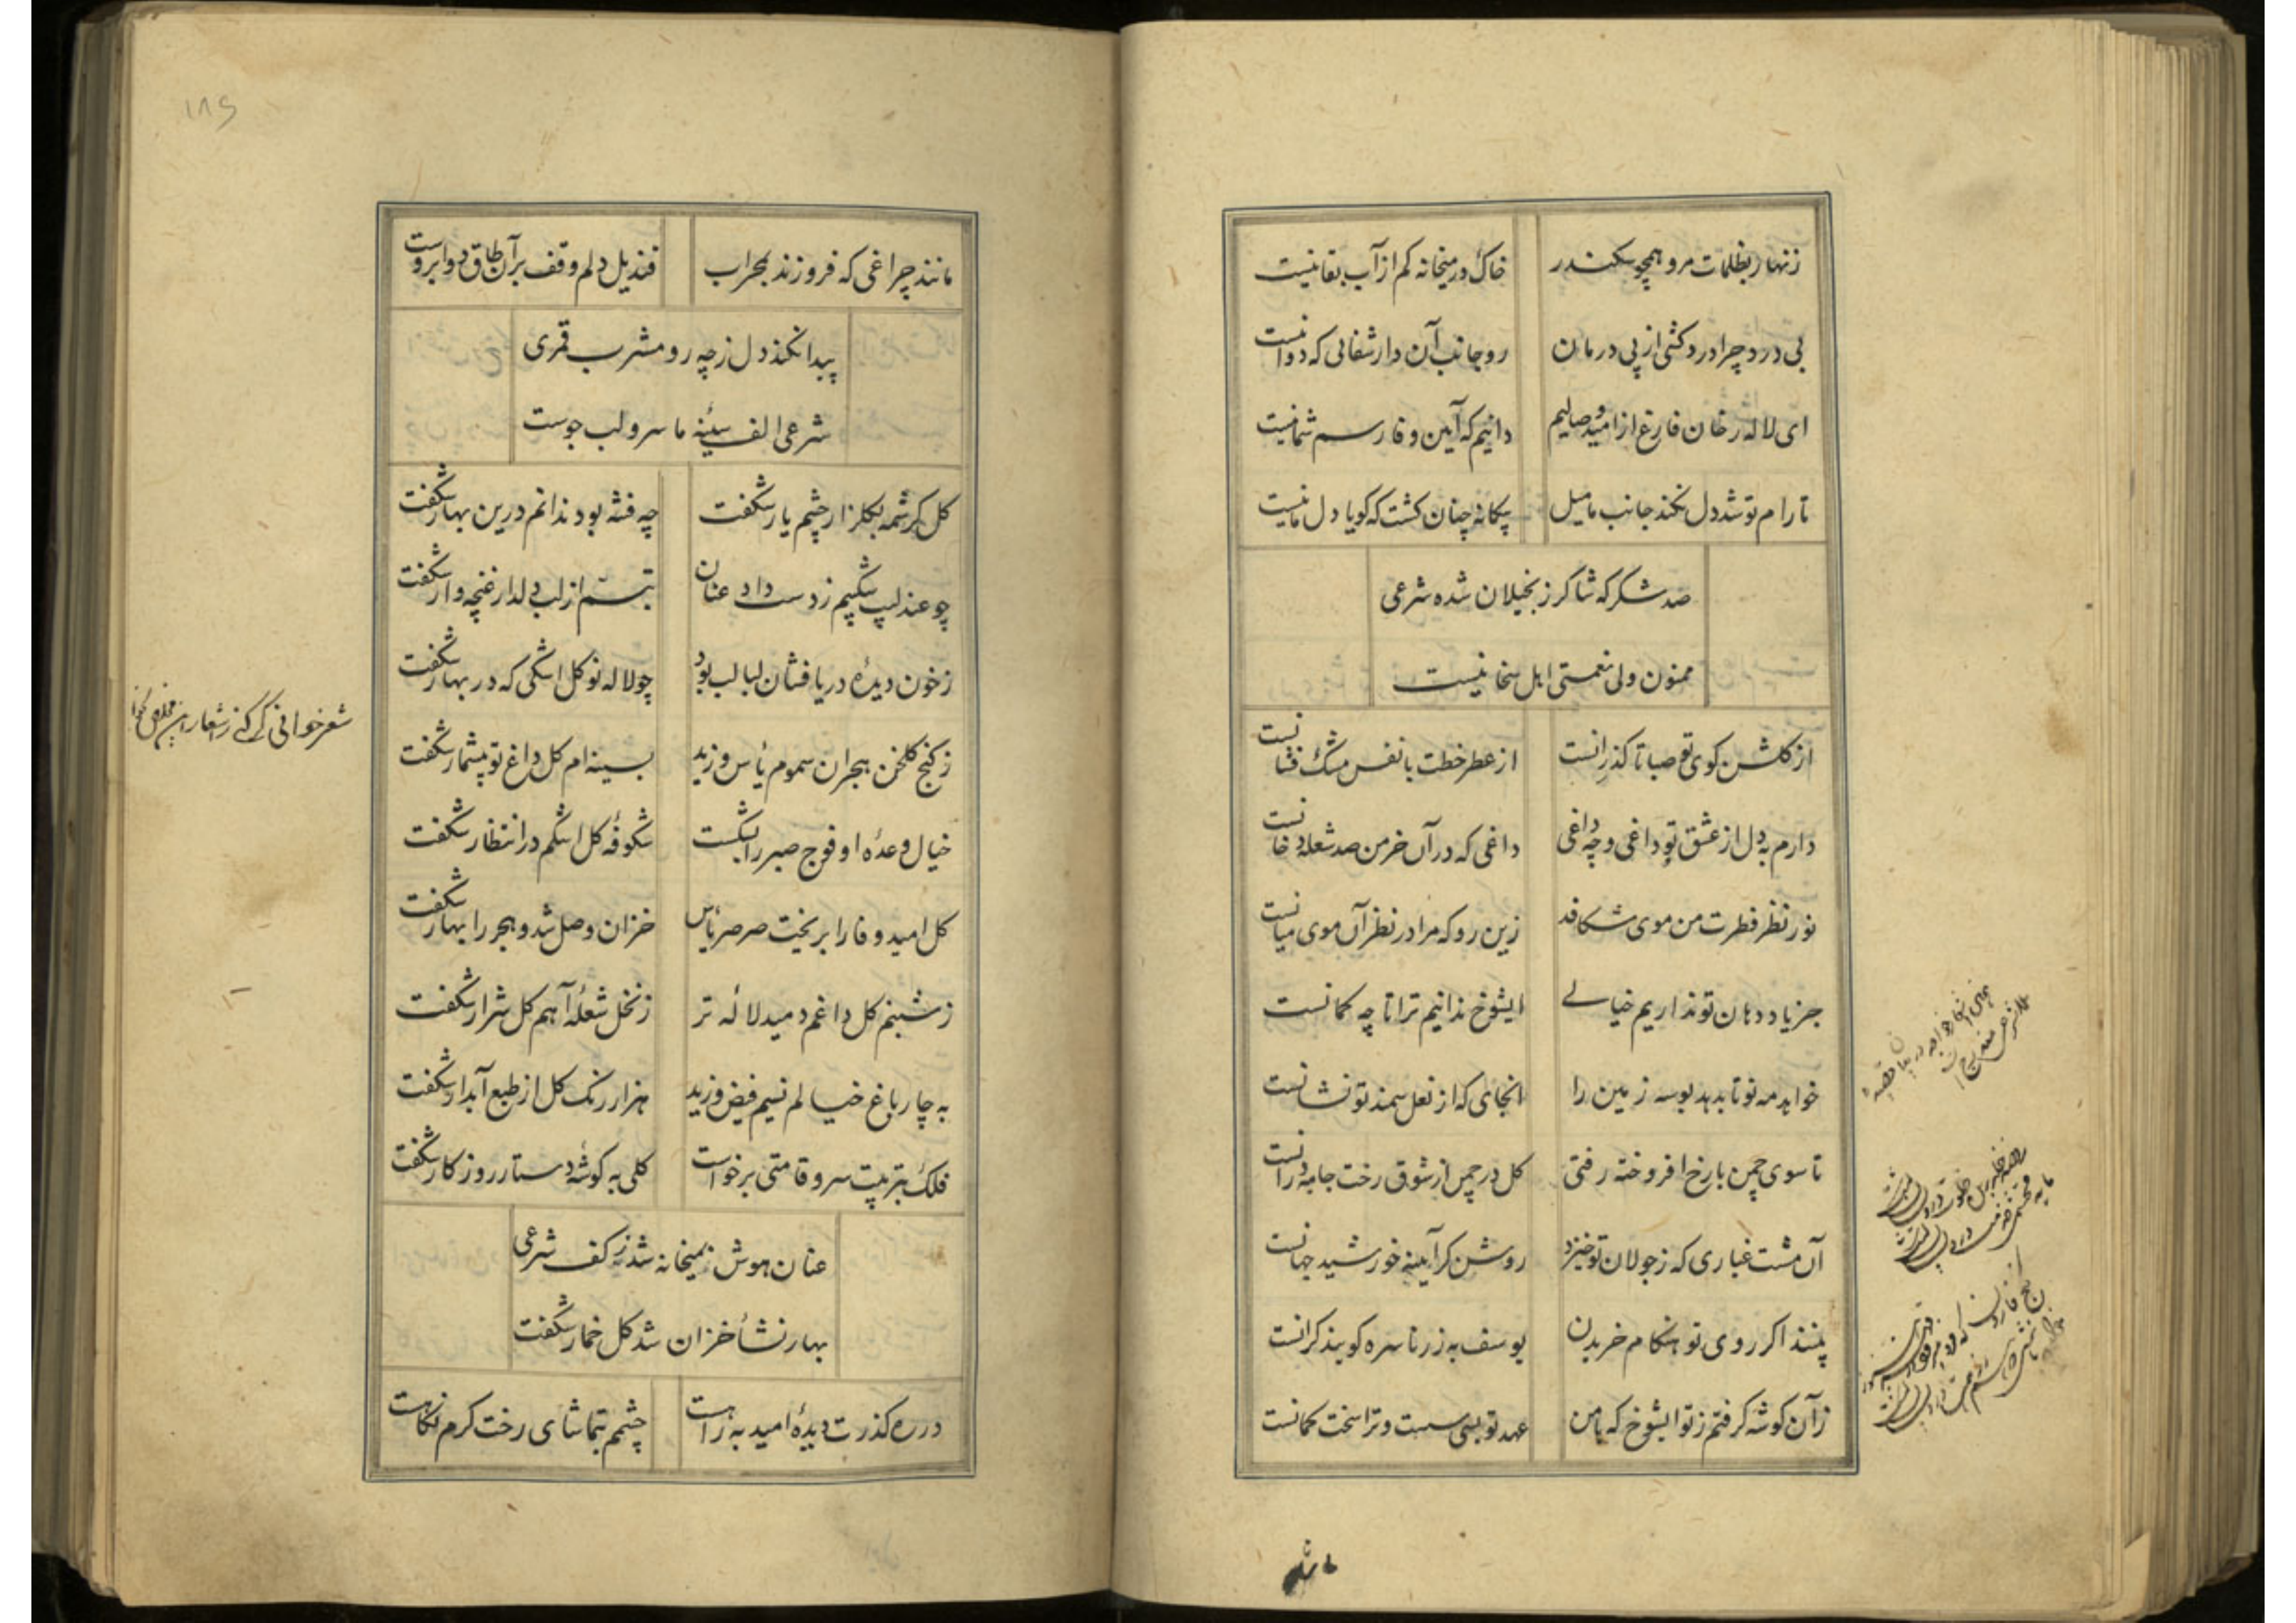 زنهار بظلمات مرو همچو سکندر خاک در میخانه کم از آب بقا نیست
بی درد چرا درد کشی از پی درمان رو جانب آن دار شفائی که دوا نیست
ای لاله رخان فارغ از امید وصالیم دانیم که آیین وفا رسم شما نیست
تا رام تو شد دل نکند جانب ما میل بیکانه چنان کشت که کویا دل ما نیست
صد شکر که شاکر ز بخیلان شده شرعی
ممنون ولی نعمتی اهل سخا نیست
از کلشن کوی تو صبا تا کذرانست از عطر خطت با نفس مشک فشانست
دارم به دل از عشق تو داغی و چه داغی داغی که در آن خرمن صد شعله دخانست
نور نظر فطرت من موی شکافد زین رو که مرا در نظر آن موی میانست
جز یاد دهان تو نداریم خیالے ایشوخ ندانیم ترا تا چه کمانست
خواهد مه نو تا بدهد بوسه زمین را انجای که از نعل سمند تو نشانست
تا سوی چمن با رخ افروخته رفتی کل در چمن از شوق رخت جامه درانست
آن مشت غباری که ز جولان تو خیزد روشن کر آیینه خورشید جهانست
بینند اکر روی تو هنکام خریدن یوسف به زر ناسره کویند کرانست
زآن کوشه کرفتم ز تو ایشوخ که با من عهد تو بسی سست و ترا سخت کمانست
مانند
۱۸۶
مانند چراغی که فروزند بمحراب قندیل دلم وقف بر آن طاق دو ابروست
پیدا نکند دل ز چه رو مشرب قمری
شرعی الف سینهٔ ما سرو لب جوست
کل کرشمه بکلزار چشم یار شکفت چه فتنه بود ندانم درین بهار شکفت
چو عندلیب شکیبم ز دست داد عنان تبسّم از لب دلدار غنچه وار شکفت
ز خون دیدهٔ دریا فشان لبالب بود چو لاله نو کل اشکی که در بهار شکفت
ز کنج کلخن هجران سموم یأس وزید بسینه ام کل داغ تو بیشمار شکفت
خیال وعدهٔ او فوج صبر را بشکست شکوفهٔ کل اشکم در انتظار شکفت
کل امید وفا را بریخت صرصر یأس خزان وصل شد و هجر را بهار شکفت
ز شبنم کل داغم دمید لالهٔ تر ز نخل شعلهٔ آهم کل شرار شکفت
به چار باغ خیالم نسیم فیض وزید هزار رنک کل از طبع آبدار شکفت
فلک بتربیت سرو قامتی برخواست کلی به کوشهٔ دستار روزکار شکفت
عنان هوش نمیخانه شد ز کف شرعی
بهار نشأ خزان شد کل خمار شکفت
در ره کذرت دیدهٔ امید به راهست چشم بتماشای رخت کرم نکاهست
شعر خوانی